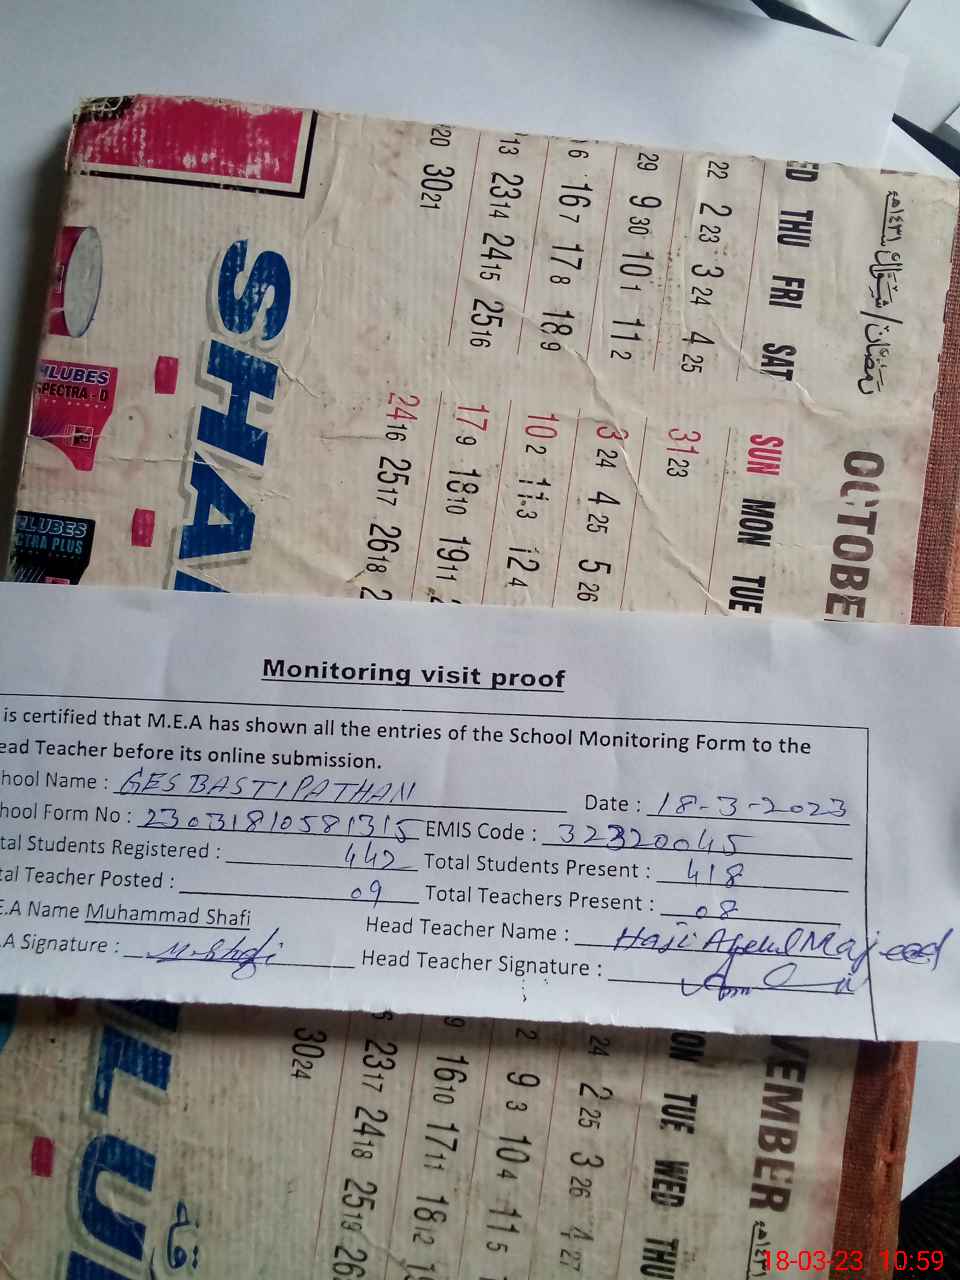 رمضان / شوال ١٤٣١ھ
OCTOBE
ED THU FRI SAT
SUN MON TUE
22 2 23 3 24 4 25
31 23
29 9 30 10 1 11 2
3 24 4 25 5 26
6 16 7 17 8 18 9
10 2 11 3 12 4
13 23 14 24 15 25 16
17 9 18 10 19 11
20 30 21
24 16 25 17 26 18 2
SHA
HLUBES
SPECTRA - D
LUBES
CTRA PLUS
Monitoring visit proof
is certified that M.E.A has shown all the entries of the School Monitoring Form to the
ead Teacher before its online submission.
hool Name : GES BASTI PATHAN Date : 18-3-2023
hool Form No : 23031810581315 EMIS Code : 32320045
tal Students Registered : 442 Total Students Present : 418
tal Teacher Posted : 09 Total Teachers Present : 08
E.A Name Muhammad Shafi Head Teacher Name : Haji Abdul Majeed
.A Signature : M. Shafi Head Teacher Signature :
VEMBER
ON TUE WED THU
24 2 25 3 26 4 27
2 9 3 10 4 11 5
9 16 10 17 11 18 12
23 17 24 18 25 19 26
30 24
LU
18-03-23 10:59